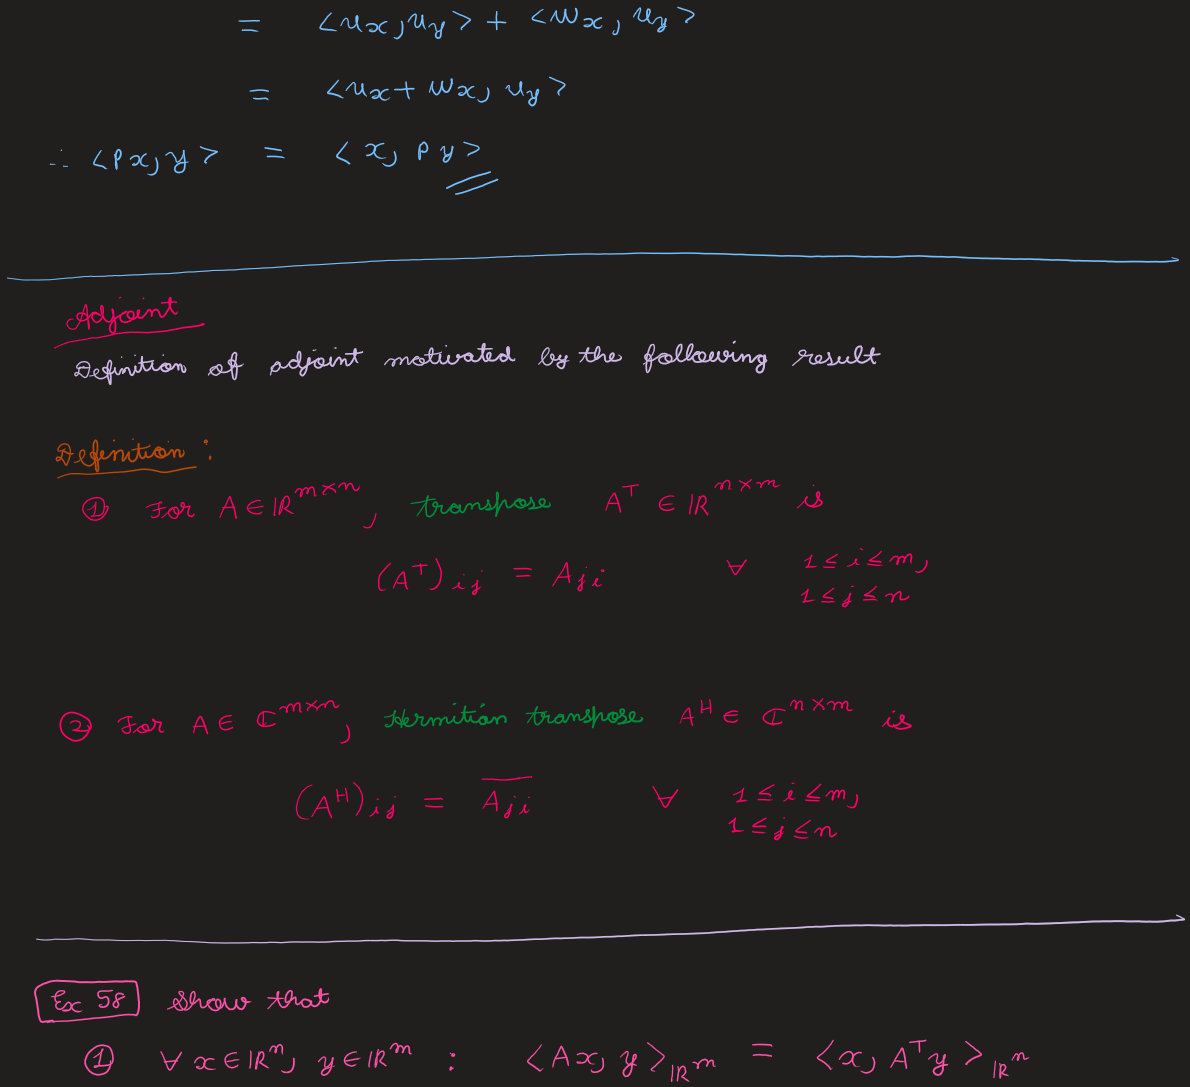 = <u_x, u_y> + <w_x, u_y>
= <u_x + w_x, u_y>
∴ <Px, y> = <x, Py>
Adjoint
Definition of adjoint motivated by the following result
Definition :
① For A ∈ ℝ^{m×n}, transpose A^T ∈ ℝ^{n×m} is
(A^T)_{ij} = A_{ji} ∀ 1 ≤ i ≤ m,
1 ≤ j ≤ n
② For A ∈ ℂ^{m×n}, Hermitian transpose A^H ∈ ℂ^{n×m} is
(A^H)_{ij} = \overline{A_{ji}} ∀ 1 ≤ i ≤ m,
1 ≤ j ≤ n
Ex 58 Show that
① ∀ x ∈ ℝ^n, y ∈ ℝ^m : <Ax, y>_{ℝ^m} = <x, A^T y>_{ℝ^n}